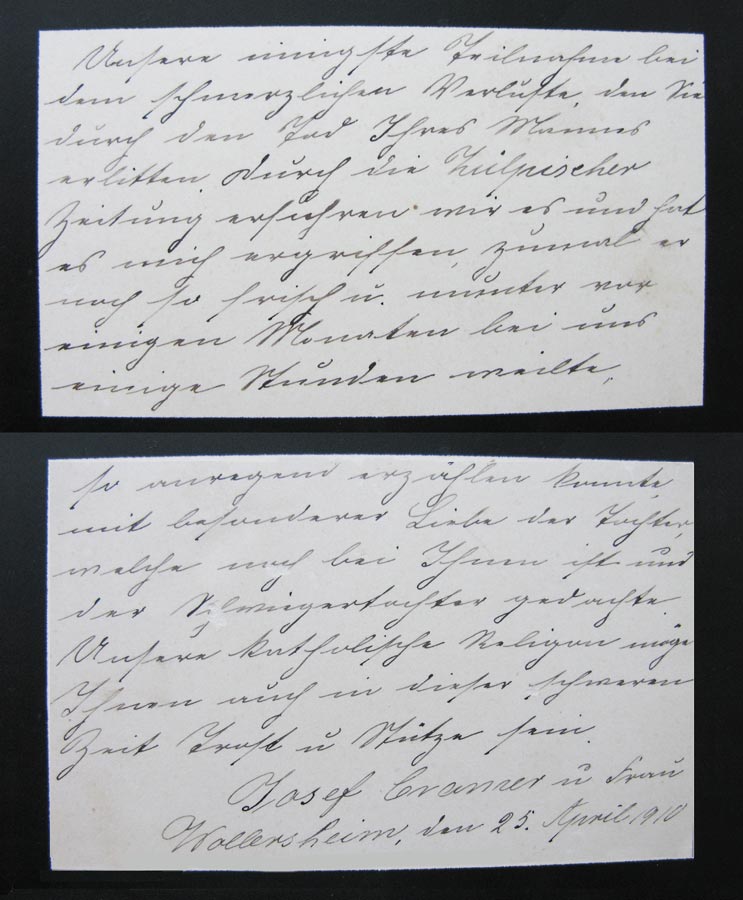 Unsere innigste Teilnahme bei
dem schmerzlichen Verluste, den Sie
durch den Tod Ihres Mannes
erlitten. Durch die Zülpischer
Zeitung erfuhren wir es und hat
es mich ergriffen, zumal er
noch so frisch u. munter vor
einigen Monaten bei uns
einige Stunden weilte,
so anregend erzählen konnte,
mit besonderer Liebe der Tochter,
welche noch bei Ihnen ist und
der Schwiegertochter gedachte.
Unsere katholische Religion möge
Ihnen auch in dieser schweren
Zeit Trost u Stütze sein.
Josef Cramer u Frau
Wollersheim, den 25. April 1910